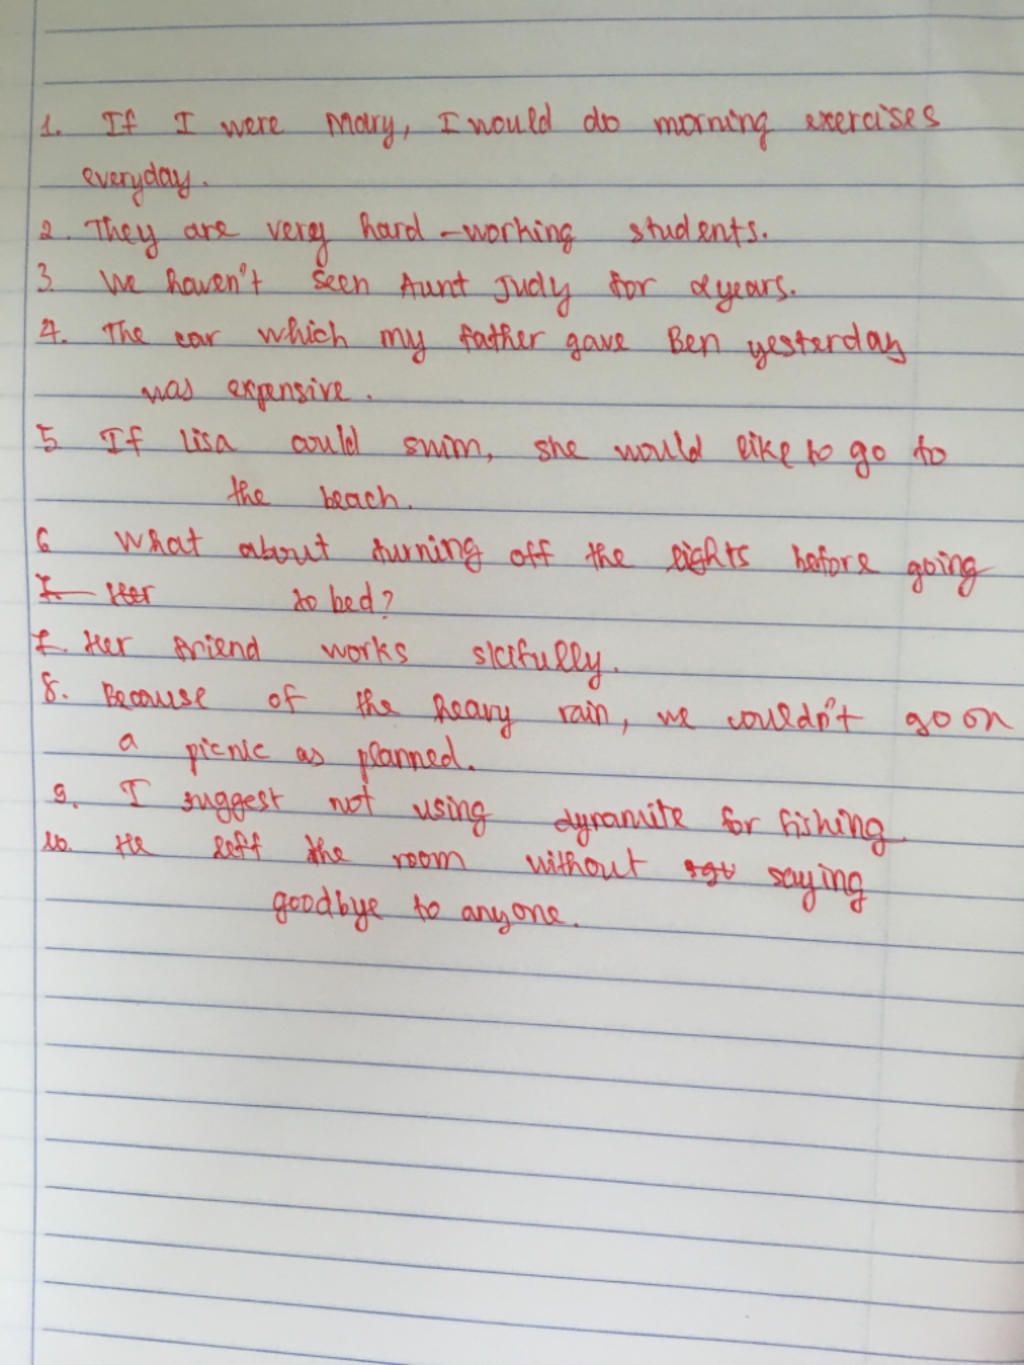 1. If I were Mary, I would do morning exercises
everyday.
2. They are very hard-working students.
3. We haven't seen Aunt Judy for 2 years.
4. The car which my father gave Ben yesterday
was expensive.
5 If Lisa could swim, she would like to go to
the beach.
6 What about turning off the lights before going
7 Her to bed?
7. Her friend works skifully.
8. Because of the heavy rain, we couldn't go on
a picnic as planned.
9. I suggest not using dynamite for fishing.
10. He left the room without saying
goodbye to anyone.